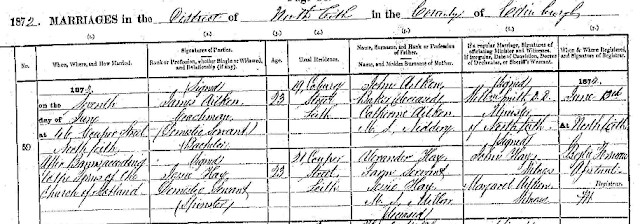 1872. MARRIAGES in the District of North Leith in the County of Edinburgh
(1.) (2.) (3.) (4.) (5.) (6.) (7.)
No. When, Where, and How Married. Signatures of Parties. Rank or Profession, whether Single or Widowed, and Relationship (if any). Age. Usual Residence. Name, Surname, and Rank or Profession of Father. Name, and Maiden Surname of Mother. If a regular Marriage, Signatures of officiating Minister and Witnesses. If irregular, Date of Conviction, Decree of Declarator, or Sheriff's Warrant. When & Where Registered, and Signature of Registrar.
59
1872,
on the
day of June
at 46 Couper Street
North Leith
After Banns according
to the Forms of the
Church of Scotland
(Signed)
James Aitken
Coachman
(Domestic Servant)
(Bachelor)
(Signed)
Jessie Hay,
Domestic Servant,
(Spinster)
23
23
Coburg
Street
Leith
21 Couper
Street
Leith
John Aitken
(deceased)
Catherine Aitken
M. S.
Alexander Hay
Farm Servant
Jessie Hay
M. S. Millar
deceased
(Signed)
Smith D.D.
Minister
of North Leith
(Signed)
John Hay,
Witness
Margaret Aitken
Witness
1872,
June 13th
at North Leith
Registrar.